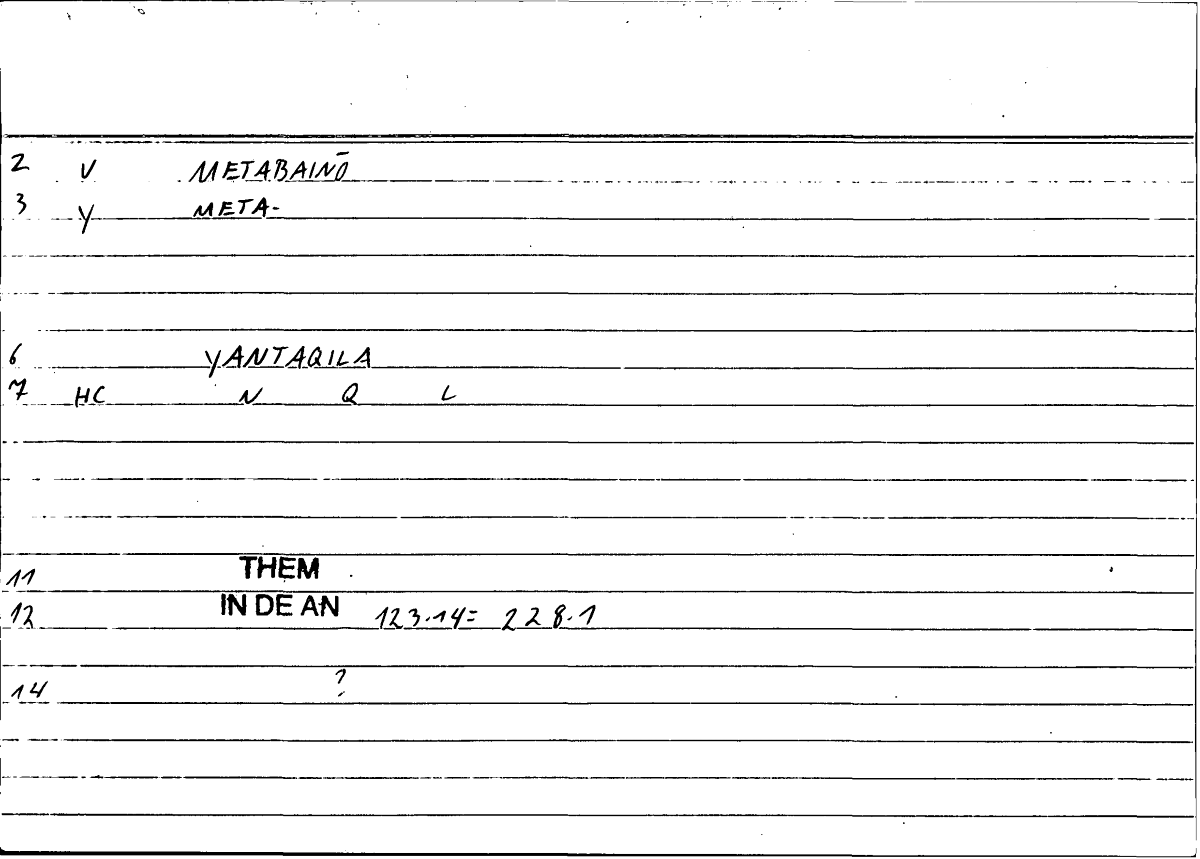 2 V METABAINŌ
3 Y META-
6 YANTAQILA
7 HC N Q L
11 THEM
12 IN DE AN 123.14= 228.1
14 ?